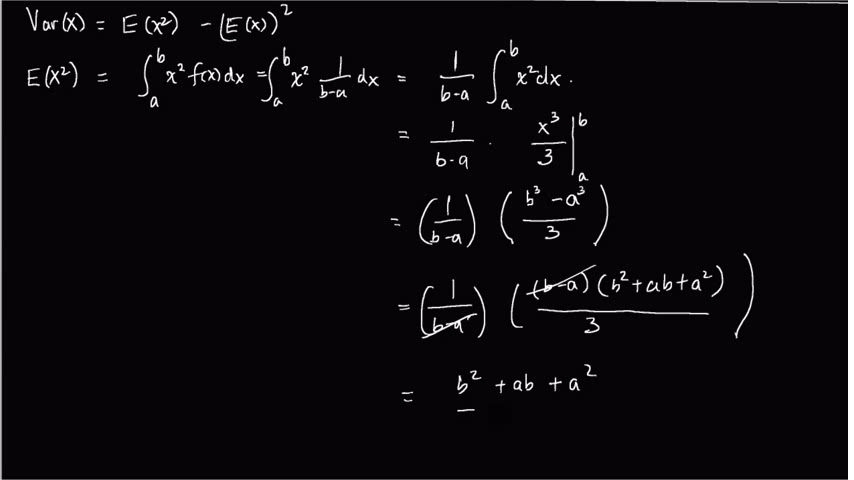 Var(x) = E(x²) - (E(x))²
E(x²) = ∫_a^b x² f(x) dx = ∫_a^b x² 1/(b-a) dx = 1/(b-a) ∫_a^b x² dx.
= 1/(b-a) · x³/3 |_a^b
= (1/(b-a)) ((b³ - a³)/3)
= (1/(b-a)) ((b-a)(b² + ab + a²)/3)
= b² + ab + a²